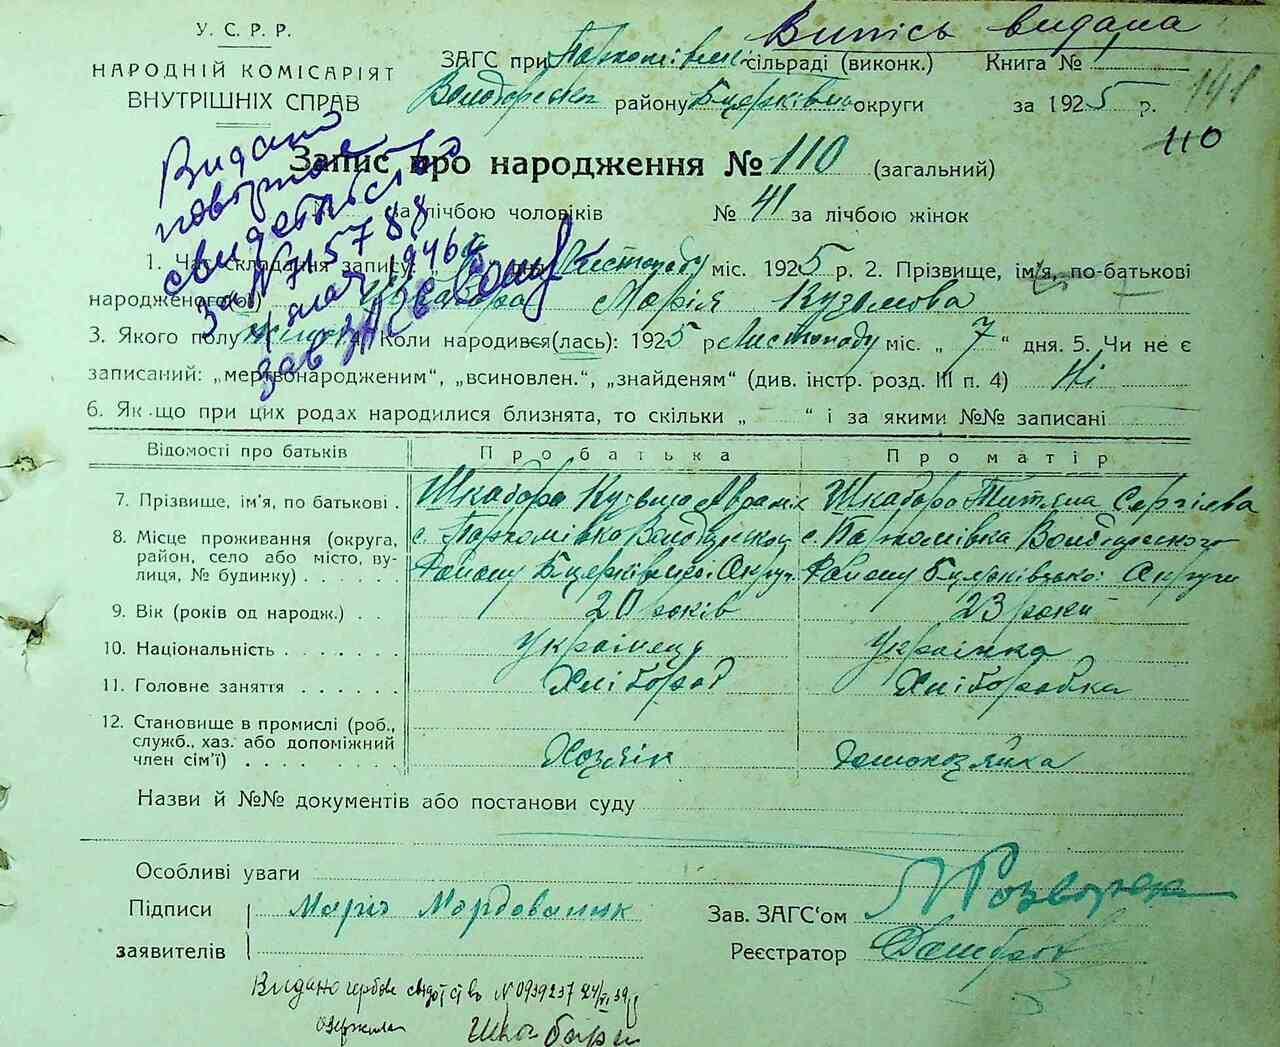 Випись видана
У. С. Р. Р.
НАРОДНІЙ КОМІСАРІЯТ
ВНУТРІШНІХ СПРАВ
ЗАГС при Пархомівські сільраді (виконк.) Книга № 1
району Бцерківськ округи за 1925 р.
141
110
Запис про народження № 110 (загальний)
Видано
повторне
свидетельство
за № 115788
1946
за лічбою чоловіків № 41 за лічбою жінок
1. Час складання запису: „ “ дня Листопаду міс. 1925 р. 2. Прізвище, ім'я, по-батькові
народженого(ої) Шкабора Марія Кузьмова
3. Якого полу 4. Коли народився(лась): 1925 р Листопаду міс. „ 7 “ дня. 5. Чи не є
записаний: „мертвонародженим“, „всиновлен.“, „знайденям“ (див. інстр. розд. III п. 4) Ні
6. Як-що при цих родах народилися близнята, то скільки „ “ і за якими №№ записані
Відомості про батьків Про батька Про матір
7. Прізвище, ім'я, по батькові . Шкабора Кузьма Аврамів Шкабора Титяна Сергієва
8. Місце проживання (округа, район, село або місто, вулиця, № будинку) . . . . . . с. Пархомівка с. Пархомівка
Району Бцерківської Округ. Району Бцерківської Округи
9. Вік (років од народж.) . . 20 років 23 роки
10. Національність . . . . . . . Українець Українка
11. Головне заняття . . . . . . Хлібороб Хліборобка
12. Становище в промислі (роб., служб., хаз. або допоміжний член сім'ї) . . . . . . . . . Хозяїн Домохозяйка
Назви й №№ документів або постанови суду
Особливі уваги
Підписи Марія Мордованик Зав. ЗАГС'ом
заявителів Реєстратор
Видано гербове свідотство № 0939237 24/XI 39 р
одержала Шкабара